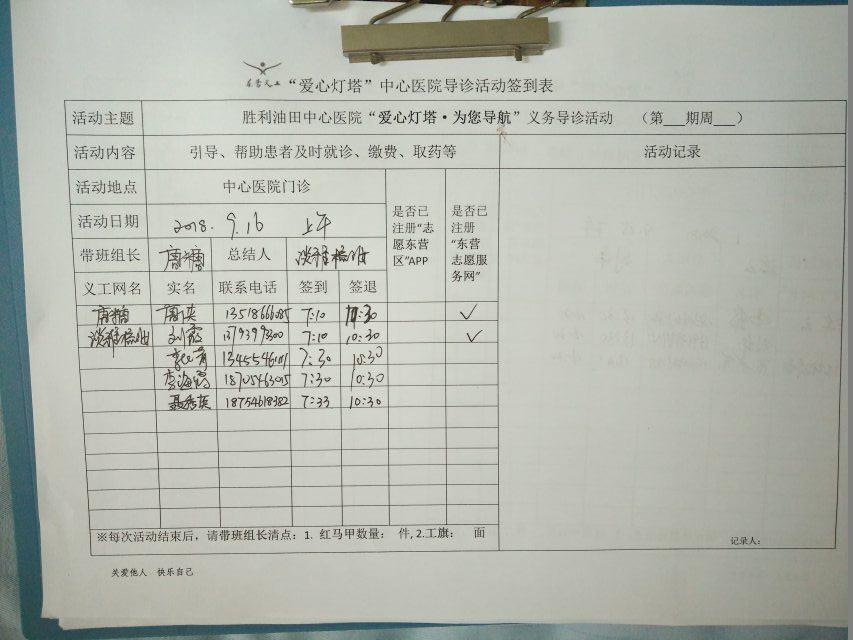 东营义工 “爱心灯塔”中心医院导诊活动签到表
活动主题 胜利油田中心医院“爱心灯塔·为您导航”义务导诊活动 （第___期周___）
活动内容 引导、帮助患者及时就诊、缴费、取药等 活动记录
活动地点 中心医院门诊 是否已注册“志愿东营区”APP 是否已注册“东营志愿服务网”
活动日期 2018. 9.16 上午
带班组长 唐糖 总结人
义工网名 实名 联系电话 签到 签退
唐糖 唐英 13518666085 7:10 10:30 ✓
刘霞 7:10 10:30 ✓
7:30 10:30
李海霞 18705463015 7:30 10:30
聂秀英 18754618382 7:33 10:30
※每次活动结束后，请带班组长清点：1. 红马甲数量： 件, 2.工旗： 面
记录人：
关爱他人 快乐自己